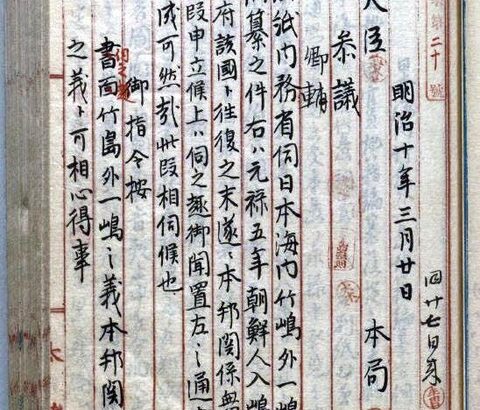 二十號
廿七日来
明治十年三月廿日 本局
大臣
参議
卿輔
紙内務省伺日本海内竹嶋外一嶋
纂之件右ハ元禄五年朝鮮人入嶋
府該國ト往復之末遂ニ本邦関係無
段申立候上ハ伺之趣御聞置左之通
成可然哉此段相伺候也
御指令按
伺之趣
書面竹島外一嶋之義本邦関
之義ト可相心得事